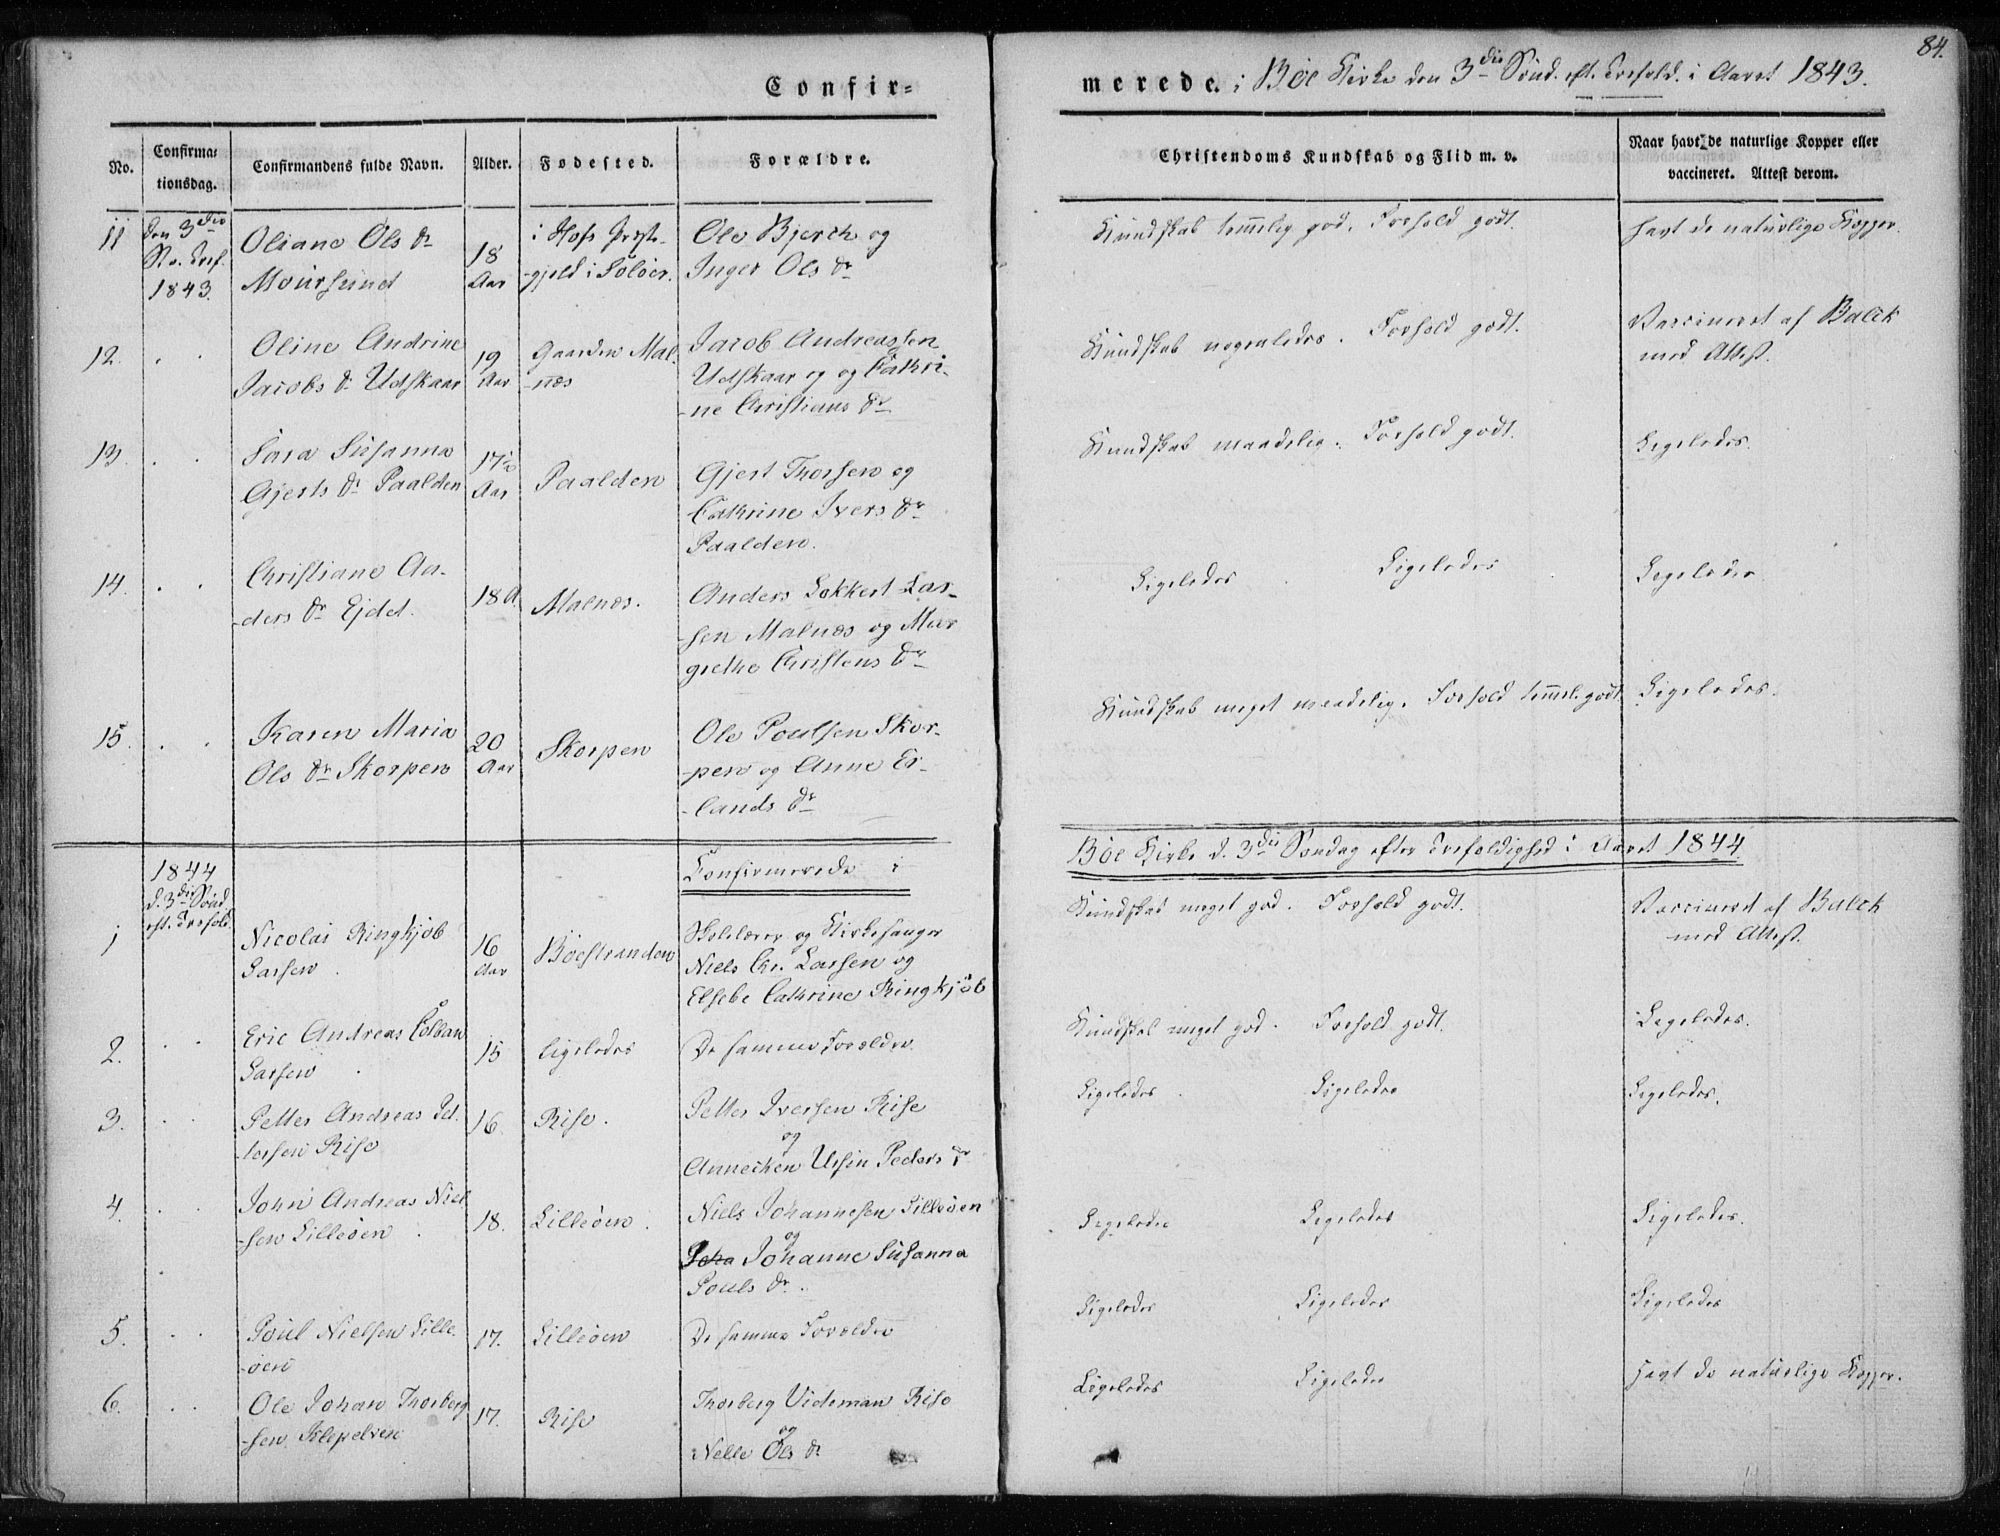 84.
Confir-
merede. i Bøe Kirke den 3die Sönd. eft. Trefold. i Aaret 1843.
No.
Confirma-
tionsdag.
Confirmandens fulde Navn.
Alder.
Fødested.
Forældre.
Christendoms Kundskab og Flid m. v.
Naar havt de naturlige Kopper eller
vaccineret. Attest derom.
11
den 3die
Tref.
1843.
Oliane Ols dr
Moursund
18
Aar
i Hofs Præste-
gjeld i Soløer.
Ole Bjerch og
Inger Ols dr
Kundskab temmelig god. Forhold godt.
Havt de naturlige Kopper.
12.
Oline Andrine
Jacobs dr Udskaar
19
Aar
Gaarden Mal-
-næs
Jacob Andreassen
Udskaar og og Cathri-
-ne Christians dr
Kundskab nogenledes. Forhold godt.
Vaccineret af Balck
med Attest.
13.
Sara Susanna
Gjerts dr Paalden
17½
Aar
Paalden
Gjert Thorsen og
Cathrine Ivers dr
Paalden.
Kundskab maadelig. Forhold godt.
Ligeledes.
14.
Christiane An-
-ders dr Ejdet.
18 A.
Malnæs.
Anders Lokkert Lar-
-sen Malnæs og Mar
grethe Christens dr
Ligeledes Ligeledes
Ligeledes
15.
Karen Maria
Ols dr Skorpen
20
Aar
Skorpen
Ole Poulsen Skor-
-pen og Anne Er-
-lands dr
Kundskab meget maadelig. Forhold temmel. godt
Ligeledes.
Confirmerede i
Bøe Kirke d. 3die Søndag efter Trefoldighed i Aaret 1844
1
1844
d. 3die Sönd.
eft. Trefold.
Nicolai Ringkjøb
Larsen.
16
Aar
Böestranden
Skolelærer og Kirkesanger
Niels Chr. Larsen og
Elsebe Cathrine Ringkjøb
Kundskab meget god. Forhold godt.
Vaccineret af Balck
med Attest.
2.
Eric Andreas Colban
Larsen
15
ligeledes
De samme Forældre.
Kundskab meget god. Forhold godt.
Ligeledes.
3.
Petter Andreas Pet-
tersen Rise
16.
Rise.
Petter Iversen Rise
og
Annecken Ursin Peders dr
Ligeledes Ligeledes
Ligeledes.
4.
John Andreas Niel-
sen Lilleöen
18.
Lilleöen.
Niels Johannesen Lilleöen
og
Joha Johanne Susanna
Pouls dr.
Ligeledes Ligeledes
Ligeledes.
5.
Poul Nielsen Lille-
-öen
17.
Lilleöen
De samme Forældre
Ligeledes Ligeledes
Ligeledes
6.
Ole Johan Thorberg-
-sen Klepelven
17.
Rise
Thorberg Videman Rise
og
Nelle Ols dr
Ligeledes Ligeledes
Havt de naturlige Kopper.